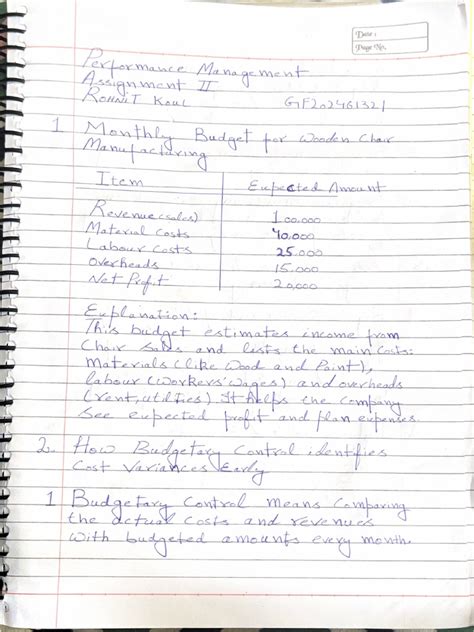 Date:
Page No.
Performance Management
Assignment II
Rohnit Kaul GF202461321
1. Monthly Budget for Wooden Chair
Manufacturing
Item Expected Amount
Revenue (sales) 1,00,000
Material Costs 40,000
Labour Costs 25,000
Overheads 15,000
Net Profit 20,000
Explanation:
This budget estimates income from
Chair sales and lists the main costs:
Materials (like Wood and Paint),
labour (Workers' Wages) and overheads
(rent, utilities) It helps the company
see expected profit and plan expenses.
2. How Budgetary Control identifies
Cost Variances Early
1 Budgetary Control means Comparing
the actual costs and revenues
with budgeted amounts every month.